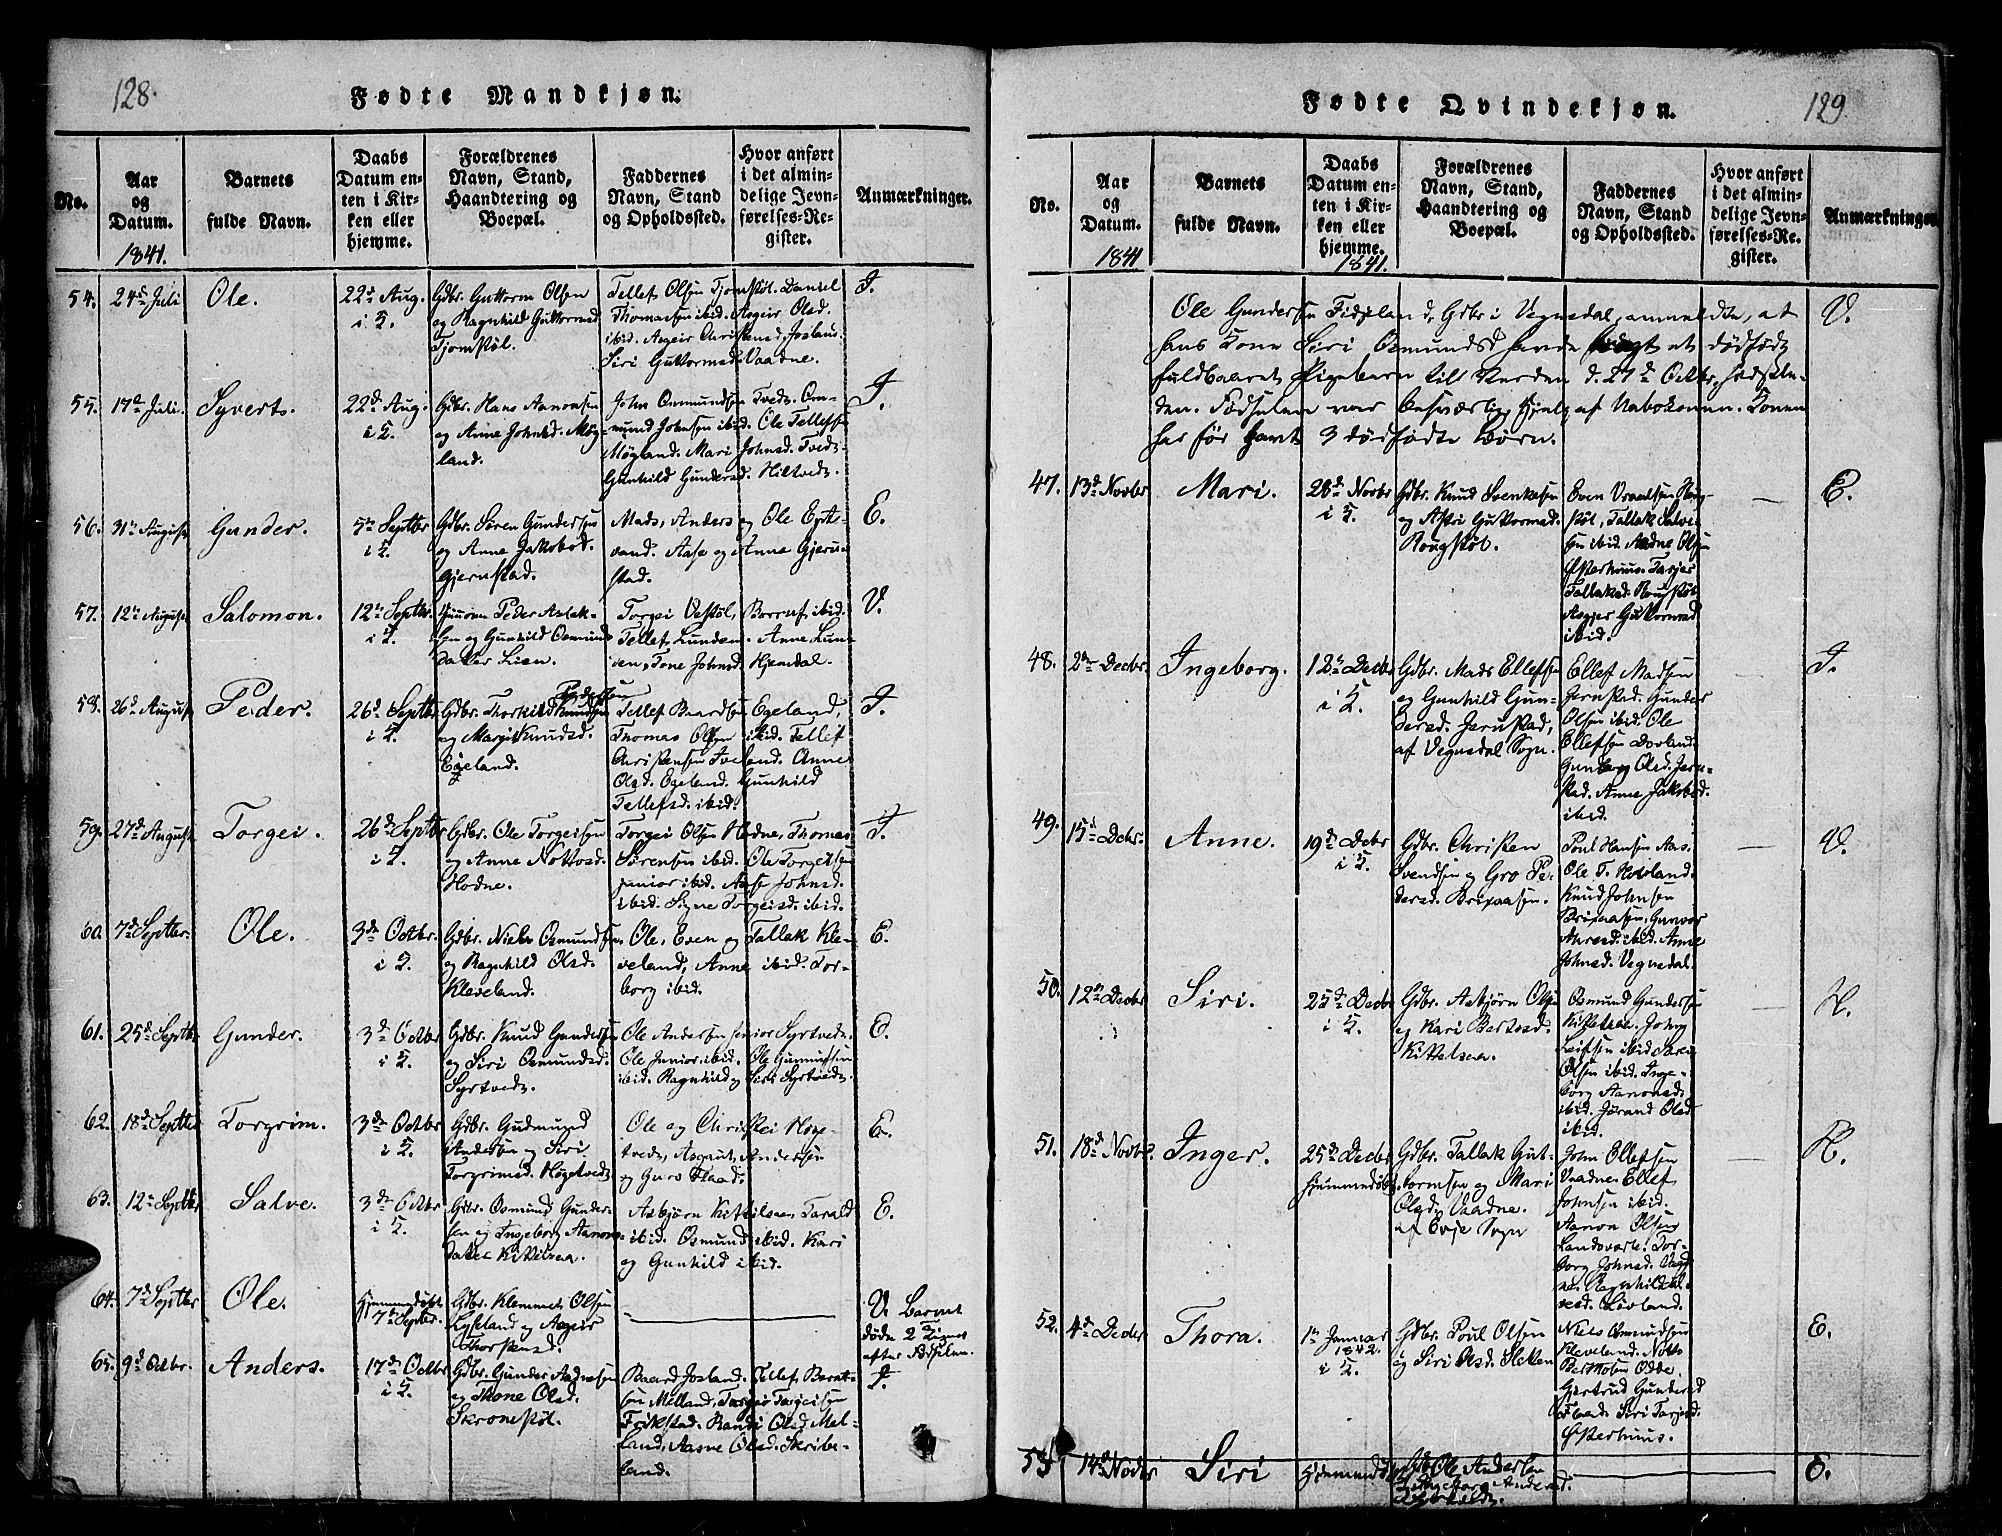 128.
Fødte Mandkjøn.
No.
Aar og Datum.
Barnets fulde Navn.
Daabs Datum enten i Kirken eller hjemme.
Forældrenes Navn, Stand, Haandtering og Boepæl.
Faddernes Navn, Stand og Opholdssted.
Hvor anført i det almindelige Jevnførelses-Register.
Anmærkninger.
1841.
54. 24de Juli Ole. 22de Aug. Gdbr. Guttorm Olsen Tellef Olsen Tjomstøl. Daniel I.
i K. og Ragnhild Guttormsd. Thomassen ibid. Aasgeir Olsd.
Tjomstøl. ibid. Aasgeir Christensd. Josland.
Siri Guttormsd. Vaadne.
55. 17de Juli. Syvert. 22de Aug. Gdbr. Hans Aanonsen John Osmundsen Tvedt. Os- I.
i K. og Anne Johnsd. Møg- mund Johnsen ibid. Ole Tellefsen
land. Møgland. Mari Johnsd. Tvedt.
Gunhild Gundersd. Hiltvedt.
56. 31te August Gunder. 5te Septbr Gdbr. Søren Gundersen Mads, Anders og Ole Epte- E.
i K. og Anne Jakobsd. vand. Aase og Anne Gjeru-
Gjernstad. stad.
57. 12te August Salomon. 12te Septbr. Peder Aslak- Torgei Vestøl, ibid. V.
i K. sen og Gunhild Osmunds- Tellef Lunden. Anne Lun-
datter Lien. den, Tone Johnsd. Hjemdal.
58. 26de August Peder. 26de Septbr Gdbr. Thorkild Pedersen Tellef Baardsen Egeland, I.
i K. og Margit Knudsd. Thomas Olsen ibid. Tellef
Egeland. Christensen Tveland. Anne
Olsd. Egeland. Gunhild
Tellefsd. ibid.
59. 27de August Torgei. 26de Septbr Gdbr. Ole Torgeisen Torgei Olsen Hodne, Thomas I.
i K. og Anne Nottvsd. Sørensen ibid. Ole Torgeisen
Hodne. junior ibid. Aase Johnsd.
ibid. Signe Torgeisd. ibid.
60. 7de Septbr. Ole. 3de Octbr. Gdbr. Niels Osmundsen Ole, Even og Tallak Kle- E.
i K. og Ragnhild Olsd. veland, Anne ibid. Tor-
Kleveland. borg ibid.
61. 25de Septbr Gunder. 3de Octbr Gdbr. Knud Gundersen Ole Andersen senior Syrtvedt. E.
i K. og Siri Osmundsd. Ole Junior ibid. Ole Gunnufsen
Syrtvedt. ibid. Ragnhild og Siri Syrtvedt.
62. 18de Septbr Torgrim. 3de Octbr Gdbr. Gudmund Ole og Christei Høge- E.
i K. Andersen og Siri tvedt, Asgaut Andersen
Torgrimsd. Høgetvedt. og Guro Flaad.
63. 12te Septbr Salve. 3de Octbr Gdbr. Osmund Gunder- Asbjørn Kittilsaa, Tarald E.
i K. sen og Ingeborg Aanons- ibid. Osmund ibid. Kari
datter Kittilsaa. og Gunhild ibid.
64. 7de Septbr Ole. Hjemmedøbt Gdbr. Klemmet Olsen V. Barnet
7de Septbr. Lyseland og Aasgeir døde 2 Timer
Thorstensd. efter Fødselen.
65. 9de Octbr. Anders. 17de Octbr Gdbr. Gunder Aadnesen Baard Josland. Tellef Bernt- I.
i K. og Thone Olsd. sen Melland, Torgei Torgeisen
Skromstøl. Frikstad. Randi Olsd. Mel-
land, Aasne Olsd. Skribe-
land.
Fødte Qvindekjøn.
129
No.
Aar og Datum.
Barnets fulde Navn.
Daabs Datum enten i Kirken eller hjemme.
Forældrenes Navn, Stand, Haandtering og Boepæl.
Faddernes Navn, Stand og Opholdssted.
Hvor anført i det almindelige Jevnførelses-Register.
Anmærkninger.
1841 1841.
Ole Gundersen Fidjeland, Gdbr i Vegusdal, anmeldte, at V.
hans Kone Siri Osmundsd havde et dødfødt
fuldbaaret Pigebarn till Verden d. 27de Octbr.
Fødselen var besværlig, Hjelp af Nabokonen. Konen
har før havt 3 dødfødte Børn.
47. 13de Novbr Mari. 28de Novbr Gdbr. Knud Svenkesen Even Vraalsen Roug- E.
i K. og Astri Guttormsd. støl, Tallak Salve-
Rougstøl. sen ibid. Aadne Olsen
Østerhuus. Tarjer
Tallaksd. Rougstøl
Aasgjer Guttormsd
ibid.
48. 2den Decbr. Ingeborg. 12te Decbr Gdbr. Mads Ellefsen Ellef Madsen I.
i K. og Gunhild Gun- Jernstad. Gunder
dersd. Jernstad, Olsen ibid. Ole
af Vegusdal Sogn. Ellefsen Dovland.
Gunborg Olsd. Jern-
stad. Anne Jakobsd.
ibid.
49. 15de Decbr. Anne. 19de Decbr Gdbr. Christen Poul Hansen Aas. V.
i K. Svendsen og Gro Pe- Ole T. Hovland.
dersd. Brixaasen. Knud Johnsen
Brixaasen, Gunvor
ibid. Anne
Johnsd. Vegusdal.
50. 12te Decbr Siri. 25de Decbr Gdbr. Asbjørn Olsen Osmund Gundersen H.
i K. og Kari Bertesd. Kittelsaa. John
Kittelsaa. Leifsen ibid.
Olsen ibid. Inge-
borg Aanonsd.
ibid. Jørand Olsd
ibid.
51. 18de Novbr. Inger. 25de Decbr Gdbr. Tallak Gut- John Ollefsen H.
hjemmedøbt. tormsen og Mari Vaadne. Ellef
Olsd. Vaadne. Johnsen ibid.
af Evje Sogn Aanon Olsen
Landsverk. Tor-
borg Johnsd. Vaad-
ne. Ragnhild
Lovland.
52. 4de Decbr Thora. 1te Januar Gdbr. Poul Olsen Niels Osmundsen E.
1842. og Siri Olsd. Sletten Kleveland. Notto
i K. Berthosen Odde.
Gjertrud Gundersd
Flaad. Siri Tarjesd.
Østerhuus.
53 14de Novbr Siri Hjemmedøbt Gdbr. Ole Andersen E.
og Andersd.